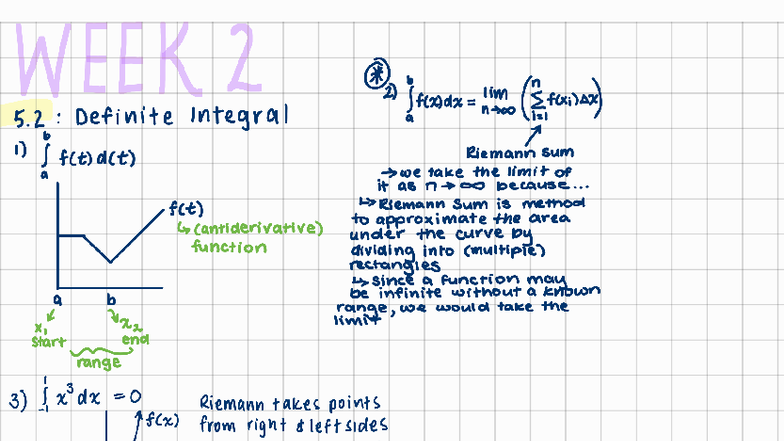 WEEK 2
5.2 : Definite Integral
1) ∫ₐᵇ f(t) d(t)
f(t)
↳ (antiderivative)
function
a b
x₁ x₂
start end
range
3) ∫₋₁¹ x³ dx = 0
f(x)
Riemann takes points
from right & left sides
*
2) ∫ₐᵇ f(x)dx = lim n→∞ (∑ᵢ₌₁ⁿ f(xᵢ)Δx)
Riemann sum
→ we take the limit of
it as n → ∞ because...
↳ Riemann Sum is method
to approximate the area
under the curve by
dividing into (multiple)
rectangles
↳ since a function may
be infinite without a known
range, we would take the
limit